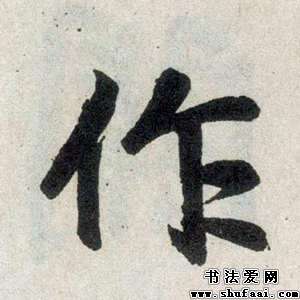 作
书法爱网
www.shufaai.com